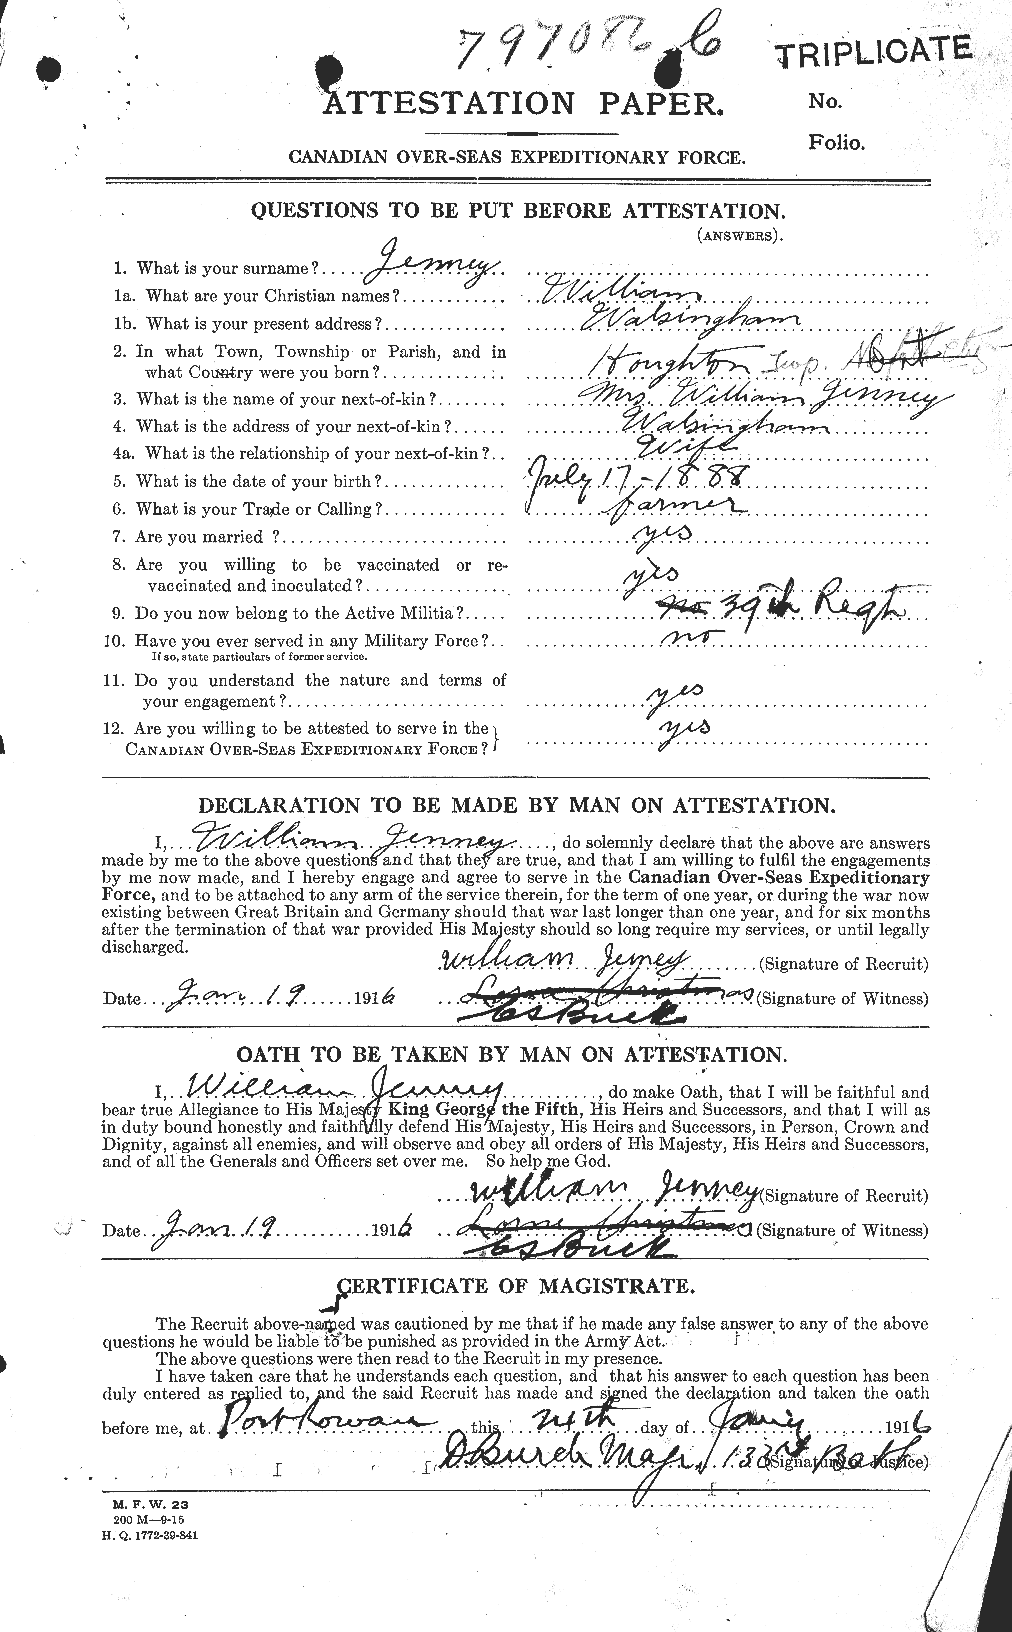 797086 C
TRIPLICATE
ATTESTATION PAPER.
No.
Folio.
CANADIAN OVER-SEAS EXPEDITIONARY FORCE.
QUESTIONS TO BE PUT BEFORE ATTESTATION.
(ANSWERS).
1. What is your surname?..... Jenney
1a. What are your Christian names?............ William
1b. What is your present address?............. Walsingham
2. In what Town, Township or Parish, and in
what Country were you born?............ Houghton Twp.
3. What is the name of your next-of-kin?........ Mrs. William Jenney
4. What is the address of your next-of-kin?...... Walsingham
4a. What is the relationship of your next-of-kin?.. Wife
5. What is the date of your birth?............. July 17-1888
6. What is your Trade or Calling?............. farmer
7. Are you married ?........................ yes
8. Are you willing to be vaccinated or re-
vaccinated and inoculated?............... yes
9. Do you now belong to the Active Militia?..... no 39th Regt
10. Have you ever served in any Military Force?.. no
If so, state particulars of former service.
11. Do you understand the nature and terms of
your engagement?....................... yes
12. Are you willing to be attested to serve in the
CANADIAN OVER-SEAS EXPEDITIONARY FORCE? yes
DECLARATION TO BE MADE BY MAN ON ATTESTATION.
I, William Jenney, do solemnly declare that the above are answers
made by me to the above questions and that they are true, and that I am willing to fulfil the engagements
by me now made, and I hereby engage and agree to serve in the Canadian Over-Seas Expeditionary
Force, and to be attached to any arm of the service therein, for the term of one year, or during the war now
existing between Great Britain and Germany should that war last longer than one year, and for six months
after the termination of that war provided His Majesty should so long require my services, or until legally
discharged.
William Jenney (Signature of Recruit)
Date Jan. 19 1916 Lorne Christmas (Signature of Witness)
CS Buck
OATH TO BE TAKEN BY MAN ON ATTESTATION.
I, William Jenney, do make Oath, that I will be faithful and
bear true Allegiance to His Majesty King George the Fifth, His Heirs and Successors, and that I will as
in duty bound honestly and faithfully defend His Majesty, His Heirs and Successors, in Person, Crown and
Dignity, against all enemies, and will observe and obey all orders of His Majesty, His Heirs and Successors,
and of all the Generals and Officers set over me. So help me God.
William Jenney (Signature of Recruit)
Date Jan. 19 1916 Lorne Christmas (Signature of Witness)
CS Buck
CERTIFICATE OF MAGISTRATE.
The Recruit above-named was cautioned by me that if he made any false answer to any of the above
questions he would be liable to be punished as provided in the Army Act.
The above questions were then read to the Recruit in my presence.
I have taken care that he understands each question, and that his answer to each question has been
duly entered as replied to, and the said Recruit has made and signed the declaration and taken the oath
before me, at Port Rowan this 24th day of Jan'y 1916
(Signature of Justice)
M. F. W. 23
200 M—9-15
H. Q. 1772-39-841